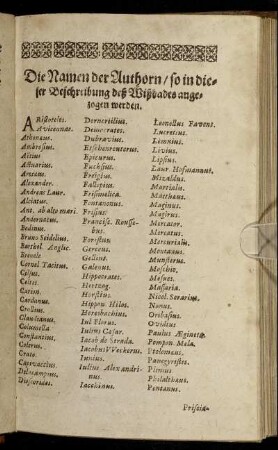 Die Namen der Authorn / so in die-
ser Beschreibung deß Wißbades ange-
zogen werden.
ARistoteles.
Avicennas.
Albanus.
Ambrosius.
Aëtius
Actuarius.
Arculan.
Alexander.
Andreas Laur.
Alciatus.
Ant. ab alto mari.
Andernacus.
Bodinus.
Bruno Seidelius.
Barthol. Anglic.
Cornel. Tacitus.
Celsus.
Celtes.
Carion.
Cardanus.
Crollius.
Claudianus.
Columella
Constantinus.
Colerus.
Crato.
Dioscorides.
Dornerellius.
Democrates.
Dubravius.
Epicurus.
Fuchsius.
Fregius.
Fallopius.
Frisimelica.
Frisius.
Forestus.
Gellius.
Galenus.
Hippocrates.
Hertzog.
Horstius.
Hippon. Hilos.
Heresbachius.
Iul. Florus.
Iulius Cæsar.
Iacob de Strada.
Iacobus VVeckerus.
Iunius.
Iulius Alexandri-
nus.
Leonellus Favent.
Lucretius.
Lemnius.
Livius.
Lipsius.
Laur. Hofmannus.
Mizaldus.
Martialis.
Matthæus.
Maginus.
Magirus.
Mercator.
Mercatus.
Mercurialis.
Montanus.
Munsterus.
Moschio.
Mesues.
Massaria.
Nicol. Serarius.
Nonus.
Oribasius.
Ovidius
Paulus Æginet.
Pompon. Mela.
Ptolomæus.
Panegyristes.
Plinius
Philaltheus.
Pentanus.
Priscia-